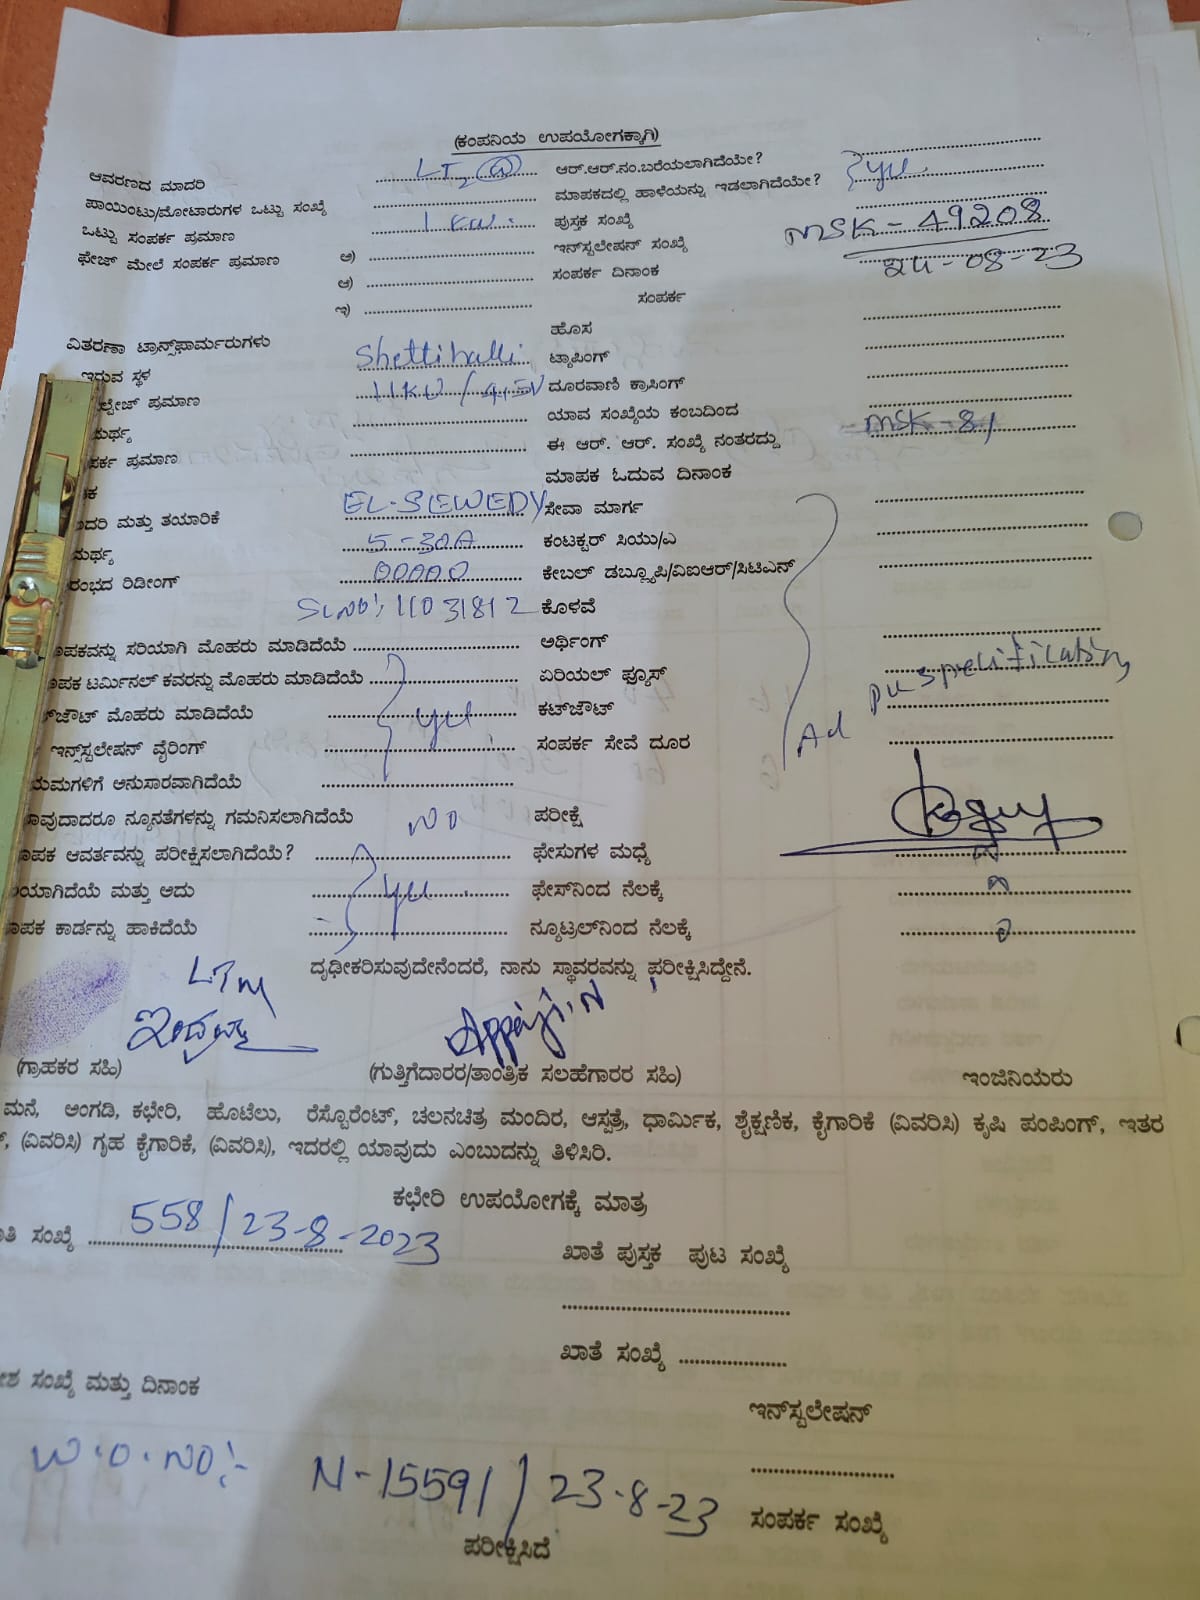 (ಕಂಪನಿಯ ಉಪಯೋಗಕ್ಕಾಗಿ)
ಆವರಣದ ಮಾದರಿ LT2(a) ಆರ್.ಆರ್.ನಂ.ಬರೆಯಲಾಗಿದೆಯೇ?
ಪಾಯಿಂಟು/ಮೋಟಾರುಗಳ ಒಟ್ಟು ಸಂಖ್ಯೆ ಮಾಪಕದಲ್ಲಿ ಹಾಳೆಯನ್ನು ಇಡಲಾಗಿದೆಯೇ?
ಒಟ್ಟು ಸಂಪರ್ಕ ಪ್ರಮಾಣ 1 KW. ಪುಸ್ತಕ ಸಂಖ್ಯೆ
ಫೇಜ್ ಮೇಲೆ ಸಂಪರ್ಕ ಪ್ರಮಾಣ ಅ) ಇನ್‌ಸ್ಟಲೇಷನ್ ಸಂಖ್ಯೆ MSK-49208
ಆ) ಸಂಪರ್ಕ ದಿನಾಂಕ -08-23
ಇ) ಸಂಪರ್ಕ
ವಿತರಣಾ ಟ್ರಾನ್ಸ್‌ಫಾರ್ಮರುಗಳು ಹೊಸ
ಇರುವ ಸ್ಥಳ Shettihalli ಟ್ಯಾಪಿಂಗ್
ಪ್ರಮಾಣ 11KV / ದೂರವಾಣಿ ಕ್ರಾಸಿಂಗ್
ಯಾವ ಸಂಖ್ಯೆಯ ಕಂಬದಿಂದ
ಪ್ರಮಾಣ ಈ ಆರ್. ಆರ್. ಸಂಖ್ಯೆ ನಂತರದ್ದು MSK-81
ಮಾಪಕ ಓದುವ ದಿನಾಂಕ
ಮತ್ತು ತಯಾರಿಕೆ EL-SEWEDY ಸೇವಾ ಮಾರ್ಗ
5-30A ಕಂಟಕ್ಟರ್ ಸಿಯು/ಎ
ರಿಡೀಂಗ್ 00000 ಕೇಬಲ್ ಡಬ್ಲ್ಯೂಪಿ/ವಿಐಆರ್/ಸಿಟಿಎನ್
Sl.No:, 11031812 ಕೊಳವೆ
ಸರಿಯಾಗಿ ಮೊಹರು ಮಾಡಿದೆಯೆ ಅರ್ಥಿಂಗ್
ಟರ್ಮಿನಲ್ ಕವರನ್ನು ಮೊಹರು ಮಾಡಿದೆಯೆ ಏರಿಯಲ್ ಫ್ಯೂಸ್
ಮೊಹರು ಮಾಡಿದೆಯೆ ಕಟ್‌ಜೌಟ್
ಇನ್ಸ್‌ಸ್ಟಲೇಷನ್ ವೈರಿಂಗ್ ಸಂಪರ್ಕ ಸೇವೆ ದೂರ
ಅನುಸಾರವಾಗಿದೆಯೆ
ನ್ಯೂನತೆಗಳನ್ನು ಗಮನಿಸಲಾಗಿದೆಯೆ NO ಪರೀಕ್ಷೆ
ಆವರ್ತವನ್ನು ಪರೀಕ್ಷಿಸಲಾಗಿದೆಯೆ? ಫೇಸುಗಳ ಮಧ್ಯೆ
ಮತ್ತು ಅದು ಫೇಸ್‌ನಿಂದ ನೆಲಕ್ಕೆ
ಕಾರ್ಡನ್ನು ಹಾಕಿದೆಯೆ ನ್ಯೂಟ್ರಲ್‌ನಿಂದ ನೆಲಕ್ಕೆ
ದೃಢೀಕರಿಸುವುದೇನೆಂದರೆ, ನಾನು ಸ್ಥಾವರವನ್ನು ಪರೀಕ್ಷಿಸಿದ್ದೇನೆ.
LTM
Appaji.N
(ಗ್ರಾಹಕರ ಸಹಿ) (ಗುತ್ತಿಗೆದಾರರ/ತಾಂತ್ರಿಕ ಸಲಹೆಗಾರರ ಸಹಿ) ಇಂಜಿನಿಯರು
ಮನೆ, ಅಂಗಡಿ, ಕಛೇರಿ, ಹೊಟೆಲು, ರೆಸ್ಟೊರೆಂಟ್, ಚಲನಚಿತ್ರ ಮಂದಿರ, ಆಸ್ಪತ್ರೆ, ಧಾರ್ಮಿಕ, ಶೈಕ್ಷಣಿಕ, ಕೈಗಾರಿಕೆ (ವಿವರಿಸಿ) ಕೃಷಿ ಪಂಪಿಂಗ್, ಇತರ
(ವಿವರಿಸಿ) ಗೃಹ ಕೈಗಾರಿಕೆ, (ವಿವರಿಸಿ), ಇದರಲ್ಲಿ ಯಾವುದು ಎಂಬುದನ್ನು ತಿಳಿಸಿರಿ.
ಕಛೇರಿ ಉಪಯೋಗಕ್ಕೆ ಮಾತ್ರ
ಸಂಖ್ಯೆ 558/23-8-2023 ಖಾತೆ ಪುಸ್ತಕ ಪುಟ ಸಂಖ್ಯೆ
ಖಾತೆ ಸಂಖ್ಯೆ
ಸಂಖ್ಯೆ ಮತ್ತು ದಿನಾಂಕ
ಇನ್‌ಸ್ಟಲೇಷನ್
W.O.NO:- N-15591/23-8-23
ಸಂಪರ್ಕ ಸಂಖ್ಯೆ
ಪರೀಕ್ಷಿಸಿದೆ